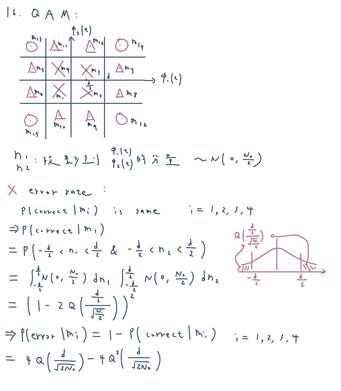 16. QAM:
φ₂(t)
m₁₃ m₁₄
m₅ m₄ m₃ m₇
φ₁(t)
m₆ m₁ m₂ m₈
m₁₅ m₁₀ m₉ m₁₆
n₁
n₂ : φ₁(t) φ₂(t) ~ N(0, N₀/2)
X error rate :
P(correct | mᵢ) is same i = 1, 2, 3, 4
⇒ P(correct | m₁)
= P(-d/2 < n₁ < d/2 & -d/2 < n₂ < d/2)
= ∫_{-d/2}^{d/2} N(0, N₀/2) dn₁ ∫_{-d/2}^{d/2} N(0, N₀/2) dn₂
= (1 - 2Q((d/2)/√(N₀/2)))²
Q((d/2)/√(N₀/2))
-d/2 d/2
⇒ P(error | mᵢ) = 1 - P(correct | mᵢ) i = 1, 2, 3, 4
= 4Q(d/√(2N₀)) - 4Q²(d/√(2N₀))